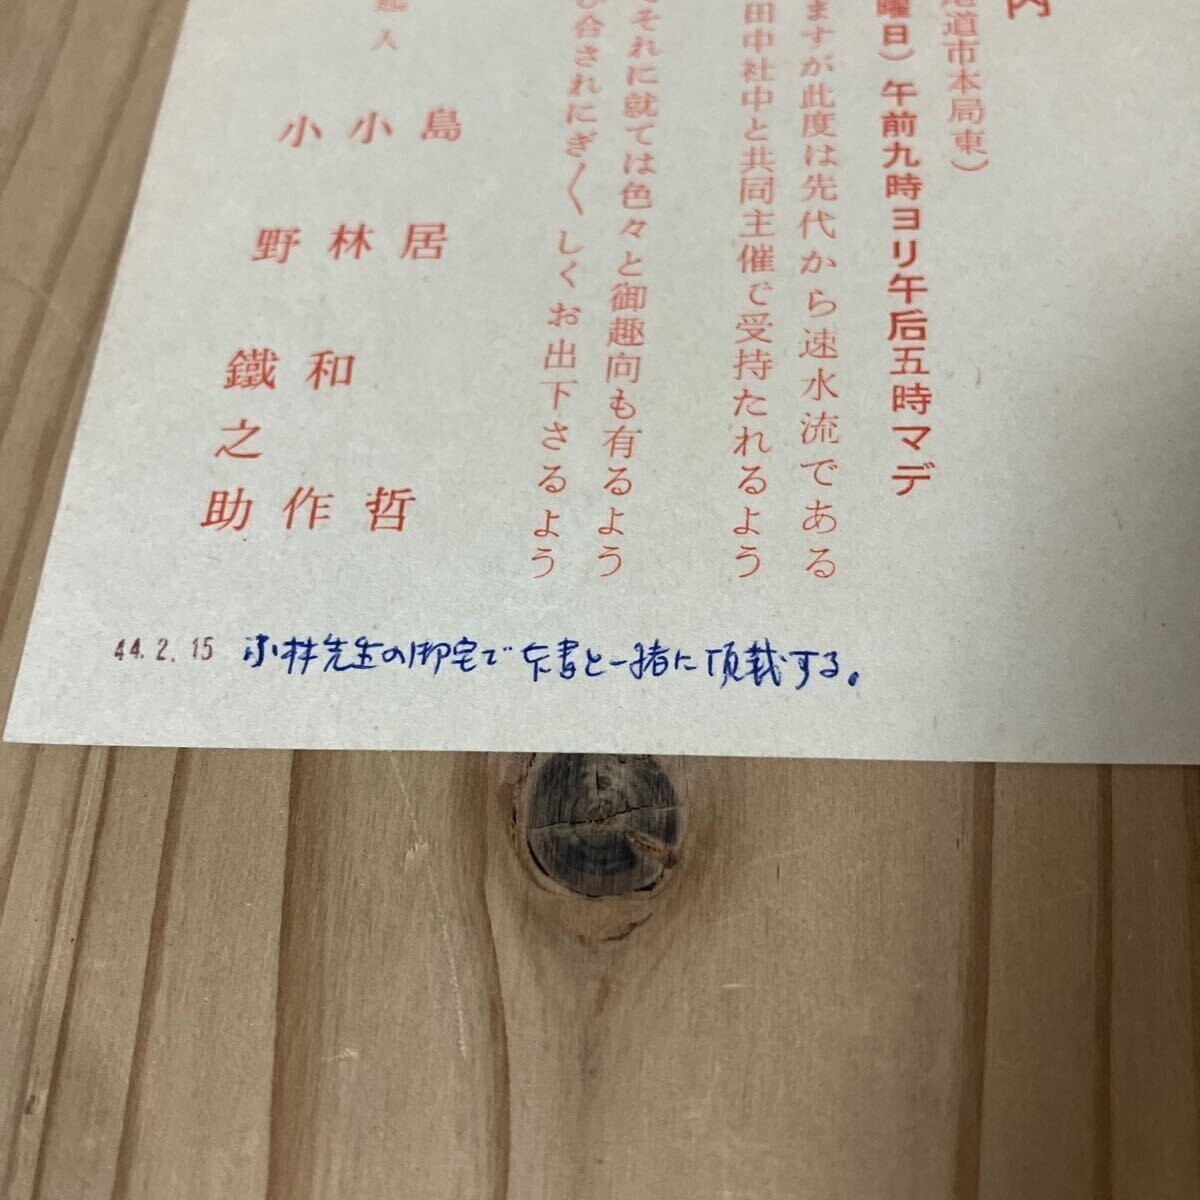 内
道市本局東）
曜日）午前九時ヨリ午后五時マデ
ますが此度は先代から速水流である
田中社中と共同主催で受持たれるよう
それに就ては色々と御趣向も有るよう
合されにぎ〳〵しくお出下さるよう
人
島居和哲
小林和作
小野鐵之助
44.2.15 小林先生の御宅で 葉書と一緒に頂戴する。